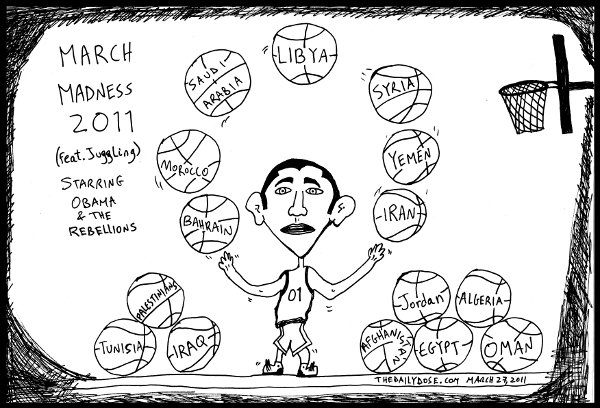 MARCH
MADNESS
2011
(feat. Juggling)
STARRING
OBAMA
& THE
REBELLIONS
LIBYA
SAUDI
ARABIA
SYRIA
MOROCCO
YEMEN
BAHRAIN
IRAN
01
PALESTINIANS
TUNISIA
IRAQ
Jordan
ALGERIA
AFGHANISTAN
EGYPT
OMAN
THEDAILYDOSE.COM MARCH 23, 2011